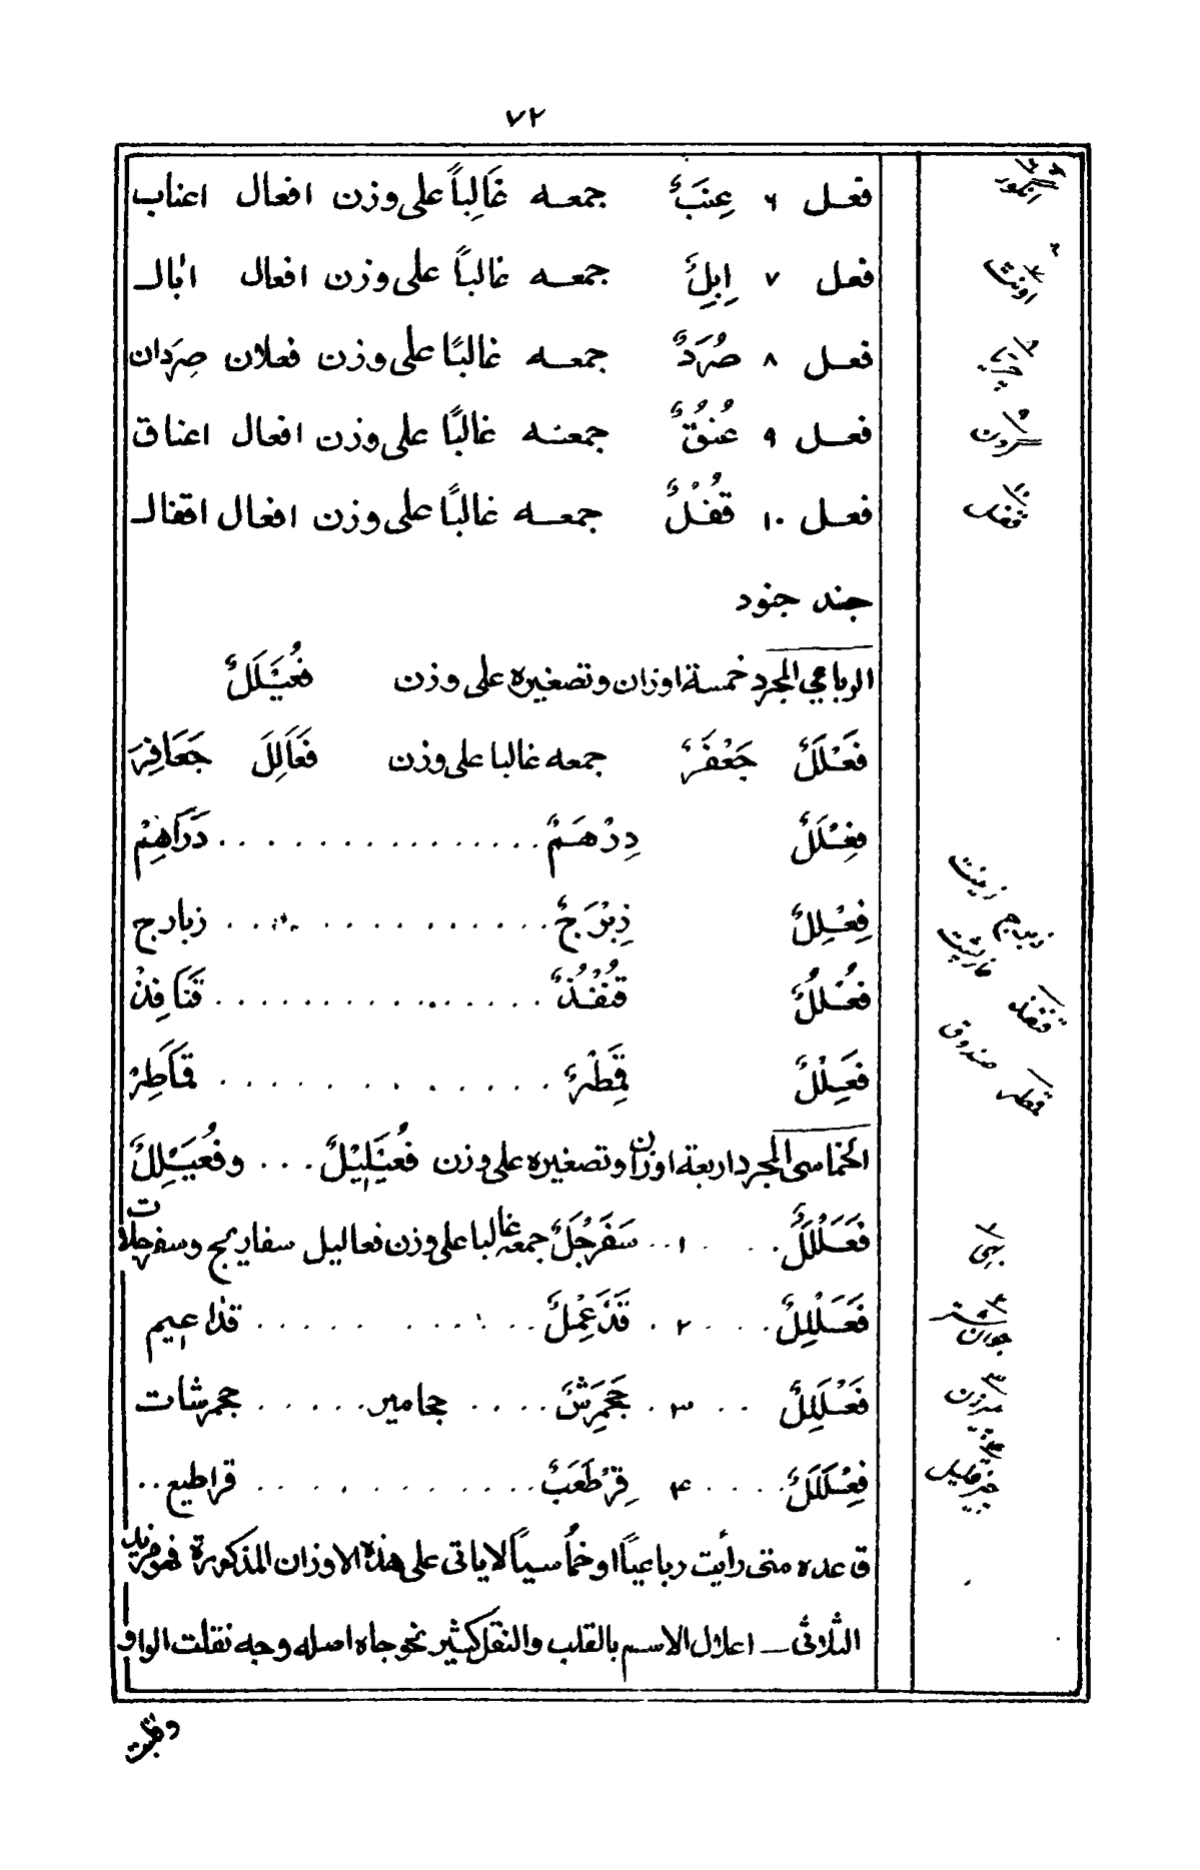 ۷۲
فعل ۶ عِنَبٌ جمعه غَالِباً علی وزن افعال اعناب
فعل ۷ اِبِلٌ جمعه غالباً علی وزن افعال اٰبال
فعل ۸ صُرَدٌ جمعه غالبًا علی وزن فعلان صِرَدان
فعل ۹ عُنُقٌ جمعنه غالبًا علی وزن افعال اعناق
فعل ۱۰ قُفُلٌ جمعه غالبًا علی وزن افعال اقفال
جند جنود
الرباعي المجرد خمسة اوزان وتصغيره علی وزن فُعَيْلَلٌ
فَعْلَلٌ جَعْفَرٌ جمعه غالبا علی وزن فَعَالِلَ جَعَافِرَ
فِعْلَلٌ دِرْهَمٌ . . . . . . . . . . . . . . دَرَاهِمْ
فِعْلِلٌ زِبْرَجٌ . . . . . . . . . . . . زبارج
فُعْلُلٌ قُنْفُذٌ . . . . . . . . . . . . . . قَنَافِذْ
فِعَلْلٌ قِمَطْرٌ . . . . . . . . . . . قَمَاطِرْ
الخماسی المجرد اربعة اوزان وتصغيره علی وزن فُعَيْلِيْلٌ . . . وفُعَيْلِلٌ
فَعَلْلَلٌ . . . ۱ . . سَفَرْجَلٌ جمعه غالبا علی وزن فعاليل سفاريج وسفرجلات
فَعَلْلِلٌ . . . . ۲ . قَذَعْمِلٌ . . . . . . . . . . قذاعيم
فَعْلَلِلٌ . . ۳ . جَحْمَرِشٌ . . . . جحامير . . . . . جحمرشات
فِعْلَلَلٌ . . . . ۴ قِرْطَعَبٌ . . . . . . . . . . . قراطيع . .
قاعده متی رأيت رباعيًا او خماسياً لا ياتی علی هذه الاوزان المذكورة فهو مزيد
الثلاثی ــ اعلال الاسم بالقلب والنقل كثير نحو جاه اصله وجه نقلت الواو
وقلبت
انگور
اونٹ
گردن
قفل
زینت
زبرج
قنفذ
صندوق
قمطر
بہی